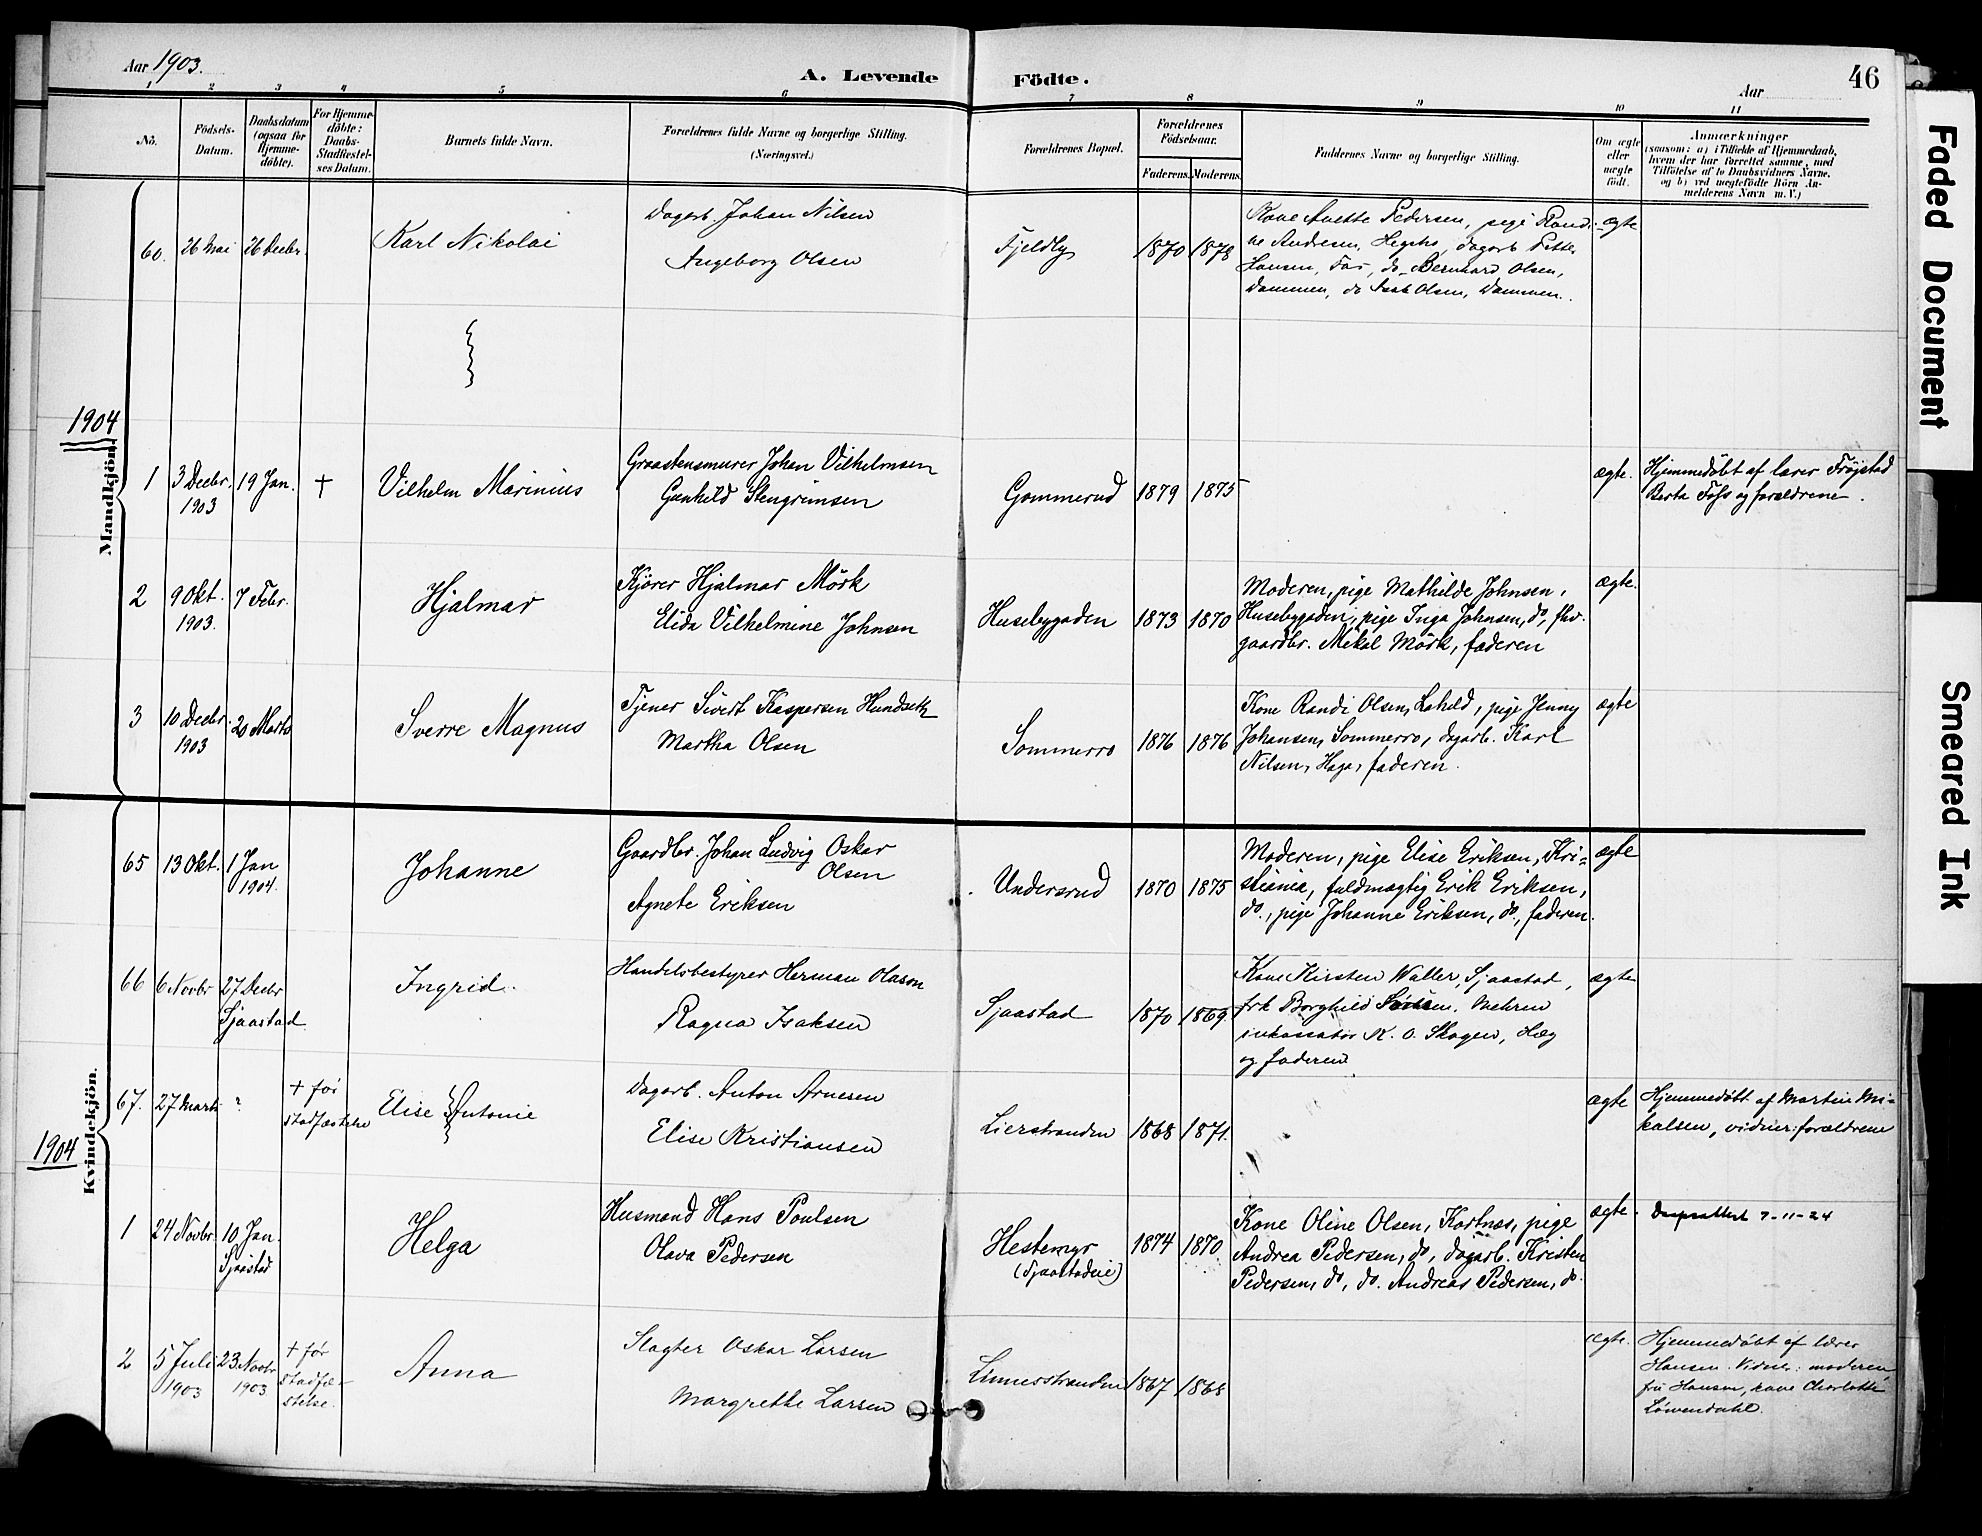 Aar 1903.
A. Levende Födte.
Aar
46
1 2 3 4 5 6 7 8 9 10 11
No.
Födsels-Datum.
Daabsdatum (ogsaa for Hjemmedöbte).
For Hjemmedöbte: Daabs-Stadfæstelses Datum.
Barnets fulde Navn.
Forældrenes fulde Navne og borgerlige Stilling.
(Næringsvei.)
Forældrenes Bopæl.
Forældrenes Födselsaar.
Faderens. Moderens.
Faddernes Navne og borgerlige Stilling.
Om ægte eller uægte födt.
Anmærkninger
(saasom: a) i Tilfælde af Hjemmedaab, hvem der har forrettet samme, med Tilföielse af to Daabsvidners Navne, og b) ved uægtefödte Börn Anmelderens Navn m. V.)
Mandkjön.
60. 26 Mai 26 Decbr. Karl Nikolai
Dagarb. Johan Nilsen
Ingeborg Olsen
Fjeldly 1870 1878
Kone Anette Pedersen, pige Randi-
ne Andresen, Hegsbro, dagarb. Petter
Hansen, Fos, do Bernhard Olsen,
Dammen, do Isak Olsen, Dammen.
ægte
1904
1 3 Decbr. 1903 19 Jan. † Vilhelm Marinius
Graastensmurer Johan Vilhelmsen
Gunhild Stengrimsen
Gommerud 1879 1875
ægte.
Hjemmedöbt af lærer Fröystad
Berta Foss og forældrene.
2 9 Okt. 1903. 7 Febr. Hjalmar
Kjörer Hjalmar Mörk
Elida Vilhelmine Johnsen
Husebygaden 1873 1870
Moderen, pige Mathilde Johnsen,
Husebygaden, pige Inga Johnsen, do, fhv.
gaardbr. Mikal Mörk, faderen
ægte.
3 10 Decbr. 1903 20 Marts Sverre Magnus
Tjener Sivert Kaspersen Hundseth
Martha Olsen
Sommerro 1876 1876
Kone Randi Olsen, Laheld, pige Jenny
Johansen, Sommerro, dagarb. Karl
Nilsen, Haga, faderen.
ægte
Kvindekjön.
65 13 Okt. 1 Jan 1904. Johanne
Gaardbr. Johan Ludvig Oskar
Olsen
Agnete Eriksen
Undersrud 1870 1875
Moderen, pige Elise Eriksen, Kri-
stiania, fuldmægtig Erik Eriksen,
do., pige Johanne Eriksen, do., faderen.
ægte
66 6 Novbr 27 Decbr Sjaastad Ingrid.
Handelsbestyrer Herman Olason
Ragna Isaksen
Sjaastad 1870 1869.
Kone Kirsten Waller, Sjaastad,
frk Borghild Mehren
inkassator K. O. Skogen, Hæg
og faderen
ægte
67. 27 Marts ? † før stadfæstelse Elise Antonie
Dagarb. Anton Arnesen
Elise Kristiansen
Lierstranden 1868 1871.
ægte
Hjemmedöbt af Martin Mi-
kalsen, vidner: forældrene
1904
1 24 Novbr. 10 Jan. Sjaastad Helga
Husmand Hans Poulsen
Olava Pedersen
Hestemyr
(Sjaastadeie)
1874 1870.
Kone Oline Olsen, Kortnes, pige
Andrea Pedersen, do, dagarb. Kristen
Pedersen, do, do. Andreas Pedersen, do.
ægte.
7-11-24
2 5 Juli 1903 23 Novbr 1903 † før stadfæ-stelse. Anna
Slagter Oskar Larsen
Margrethe Larsen
Linnesstranden 1867 1868
ægte.
Hjemmedöbt af lærer
Hansen. Vidner: moderen
fru Hansen, kone Charlotte
Löwendahl.
Faded Document
Smeared Ink